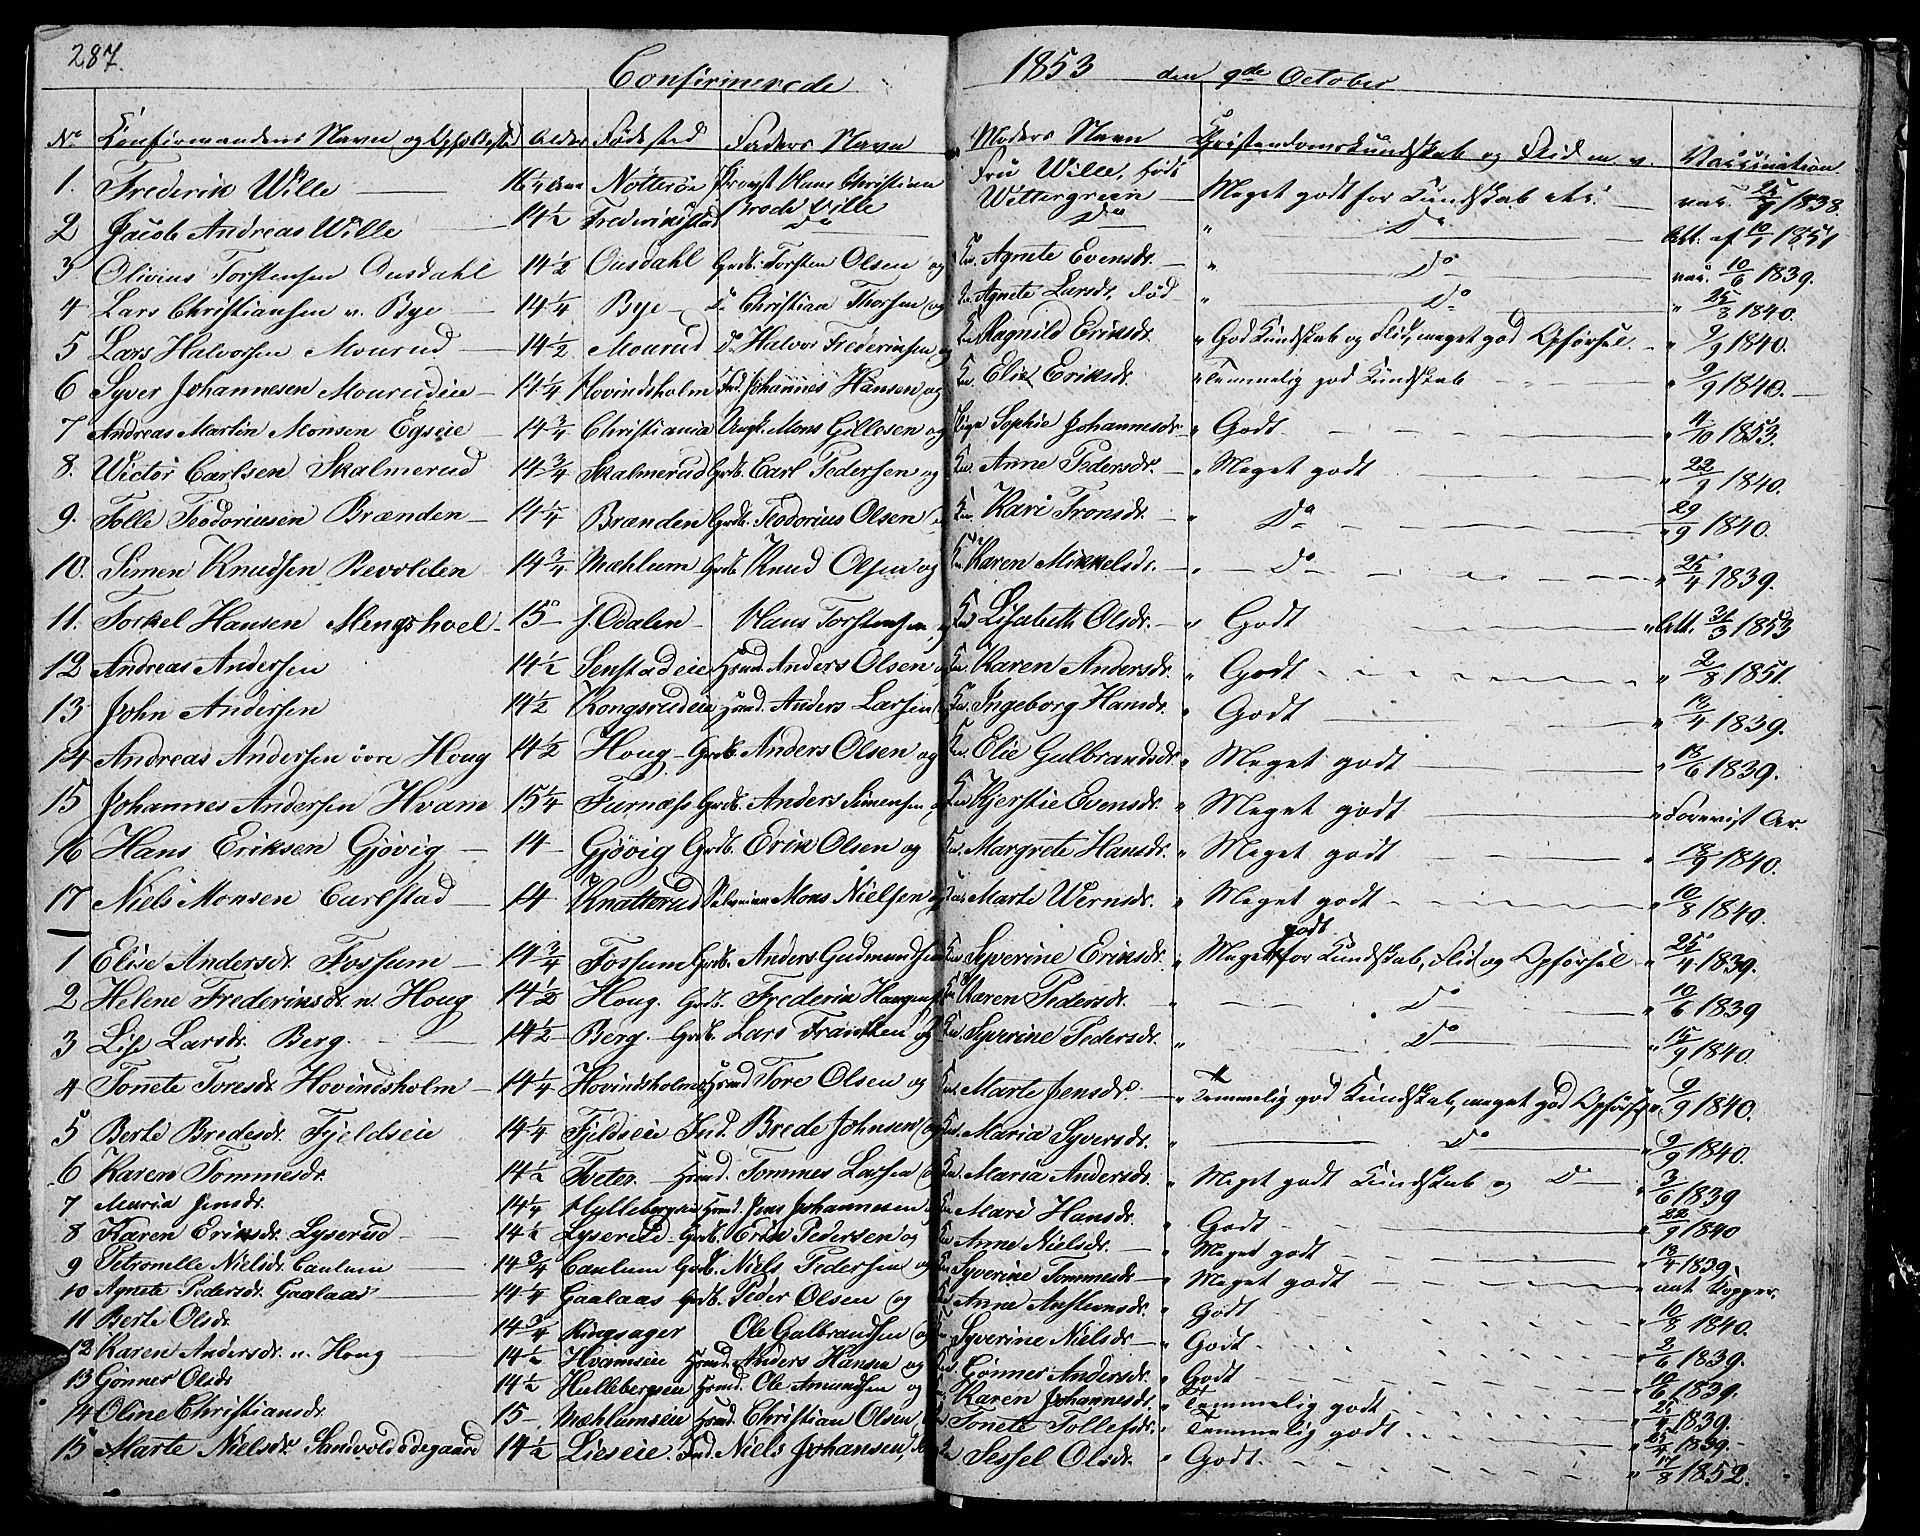 287.
Confirmerede 1853 den 9de October
No Confirmandens Navn og Opholdssted Alder Fødested Faders Navn Moders Navn Christendomskundskab og Flid m. v. Vaccination
1. Frederik Wille 16 1/4 Aar Nøtterøe Provst Hans Christian Brode Wille Fru Wille, født Wettergreen Meget godt for Kundskab etc. vac. 1838.
2 Jacob Andreas Wille 14 1/2 Frederikstad Do Do " Do Att. af 10/1 1851
3 Olivius Torstensen Ousdahl 14 1/2 Ousdahl Grdb. Torsten Olsen og Kv. Agnete Evensdr. " Do vac. 10/6 1839.
4 Lars Christiansen v. Bye 14 1/4 Bye Do Christian Thorsen og Kv. Agnete Larsdr. " Do " 25/8 1840.
5 Lars Halvorsen Mourud 14 1/2 Mourud Do Halvor Frederiksen og Kv. Ragnild Eriksdr. " God Kundskab og Flid, meget god Opførsel " 9/9 1840.
6 Syver Johannesen Mourudeie 14 1/4 Hovindsholm Ind. Johannes Hansen og Kv. Elie Eriksdr. " Temmelig god Kundskab " 9/9 1840.
7 Andreas Martin Monsen Egseie 14 3/4 Christiania Ungk. Mons Gillesen og Pige Sophie Johannesdr. " Godt " 11/10 1853.
8. Victor Carlsen Skalmerud 14 3/4 Skalmerud Grdb. Carl Pedersen og Kv. Anne Pedersdr. " Meget godt " 22/9 1840.
9. Tolle Teodoriusen Brænden 14 1/4 Brænden Grdb. Teodorius Olsen Kv. Kari Tronsdr. " Do " 29/9 1840.
10. Simen Knudsen Bevolden 14 3/4 Mæhlum Grdb. Knud Olsen og Kv. Karen Mikkelsdr. " Do " 25/4 1839.
11. Torkel Hansen Mengshoel 15 S. Odalen Hans Torstensen, og Kv. Lisabeth Olsdr. " Godt " Att. 31/3 1853
12 Andreas Andersen 14 1/2 Senstadeie Huusmd. Anders Olsen og Kv. Karen Andersdr. " Godt " 2/8 1851.
13 John Andersen 14 1/2 Kongsrudeie Huusmd. Anders Larsen og Kv. Ingeborg Hansdr. " Godt " 13/4 1839.
14 Andreas Andersen øvre Houg 14 1/2 Houg Grdb. Anders Olsen og Kv. Elie Gulbrandsdr. " Meget godt " 13/6 1839.
15 Johannes Andersen Hvam 15 1/4 Furnæs Grdb. Anders Simensen, og Kv. Kjerstie Evensdr. " Meget godt " Foreviist Ar.
16 Hans Eriksen Gjøvig 14 Gjøvig Grdb. Erik Olsen og Kv. Margrete Hansdr. " Meget godt " 13/9 1840.
17 Niels Monsen Carlstad 14 Knatterud Mons Nielsen og Kv. Marte Wernsdr. " Meget godt " 10/8 1840.
1 Elise Andersdr. Fossum 14 3/4 Fossum Grdb. Anders Gudmundsen Kv. Syverine Eriksdr. " Meget godt for Kundskab, Flid og Opførsel " 25/4 1839.
2 Helene Frederiksdr. n. Houg 14 1/2 Houg. Grdb. Frederik Haagensen Kv. Karen Pedersdr. " Do " 10/6 1839
3 Lise Larsdr. Berg. 14 1/2 Berg. Grdb. Lars Frantzen og Kv. Syverine Pedersdr. " Do " 15/9 1840.
4 Tonete Toresdr. Hovindsholm 14 1/4 Hovindsholm Huusmd Tore Olsen og Kv. Marte Jensdr. " Temmelig god Kundskab, meget god Opførsel " 9/9 1840.
5 Berte Bredesdr. Fjeldseie 14 1/4 Fjeldseie Ind. Brede Johnsen og Kv. Maria Syversdr. " Do " 9/9 1840.
6 Karen Tommesdr. 14 1/2 Tveter. Huusmd. Tommes Larsen og Kv. Maria Andersdr. " Meget godt Kundskab og Do " 3/6 1839
7 Maria Jensdr. 14 1/4 Hullebergseie Huusmd. Jens Johannesen Kv. Mari Hansdr. " Godt " 22/9 1840
8 Karen Eriksdr. Lyserud 14 1/2 Lyserud Grdb. Erik Pedersen og Kv. Anne Nielsdr. " Meget godt " 13/4 1839.
9 Petronelle Nielsdr. Caulum 14 3/4 Caulum Grdb. Niels Pedersen og Kv. Syverine Tommesdr. " Meget godt nat. Kopper.
10 Agnete Pedersdr. Gaalaas 14 1/4 Gaalaas Grdb. Peder Olsen og Kv. Anne Anstensdr. " Godt " 10/8 1840.
11 Berte Olsdr. 14 3/4 Ringsager Ole Gulbrandsen og Kv. Syverine Nielsdr. " Godt " 2/6 1839.
12 Karen Andersdr. n. Houg 14 1/2 Hvamseie Huusmd. Anders Hansen og Kv. Gønner Andersdr. " Godt " 10/6 1839.
13 Gønner Olsdr. 14 1/2 Hullebergseie Huusmd. Ole Amundsen og Karen Johannesdr. " Temmelig godt " 25/4 1839.
14 Oline Christiansdr. 15 Mæhlumseie Huusmd. Christian Olsen, Tonete Tollefsdr. " Temmelig godt " 25/4 1839.
15 Marte Nielsdr. Sandvoldødegaard 14 1/2 Lieseie. Ind. Niels Johansen, Sessel Olsdr. " Godt. " 17/8 1852.